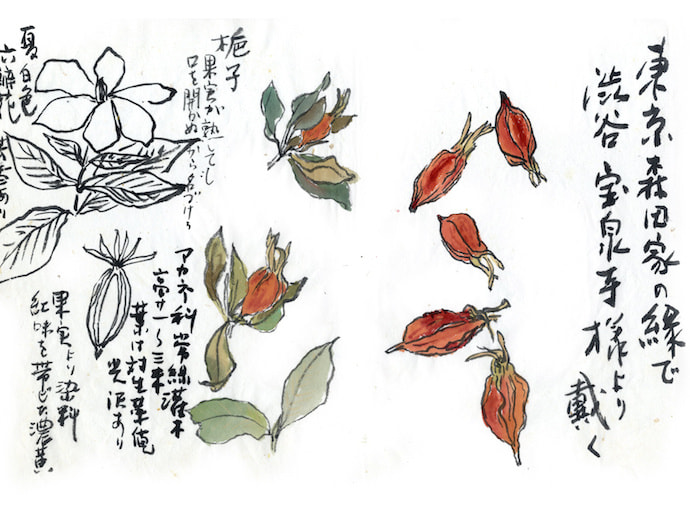 東京森田家の縁で
渋谷 宝泉寺様より
戴く
梔子
果実が熟しても
口を開かぬ から名づけら
夏白色
六瓣花
アカネ科常緑灌木
高サ一〜三米
葉は対生革質
光沢あり
果実より染料
紅味を帯びた濃黄